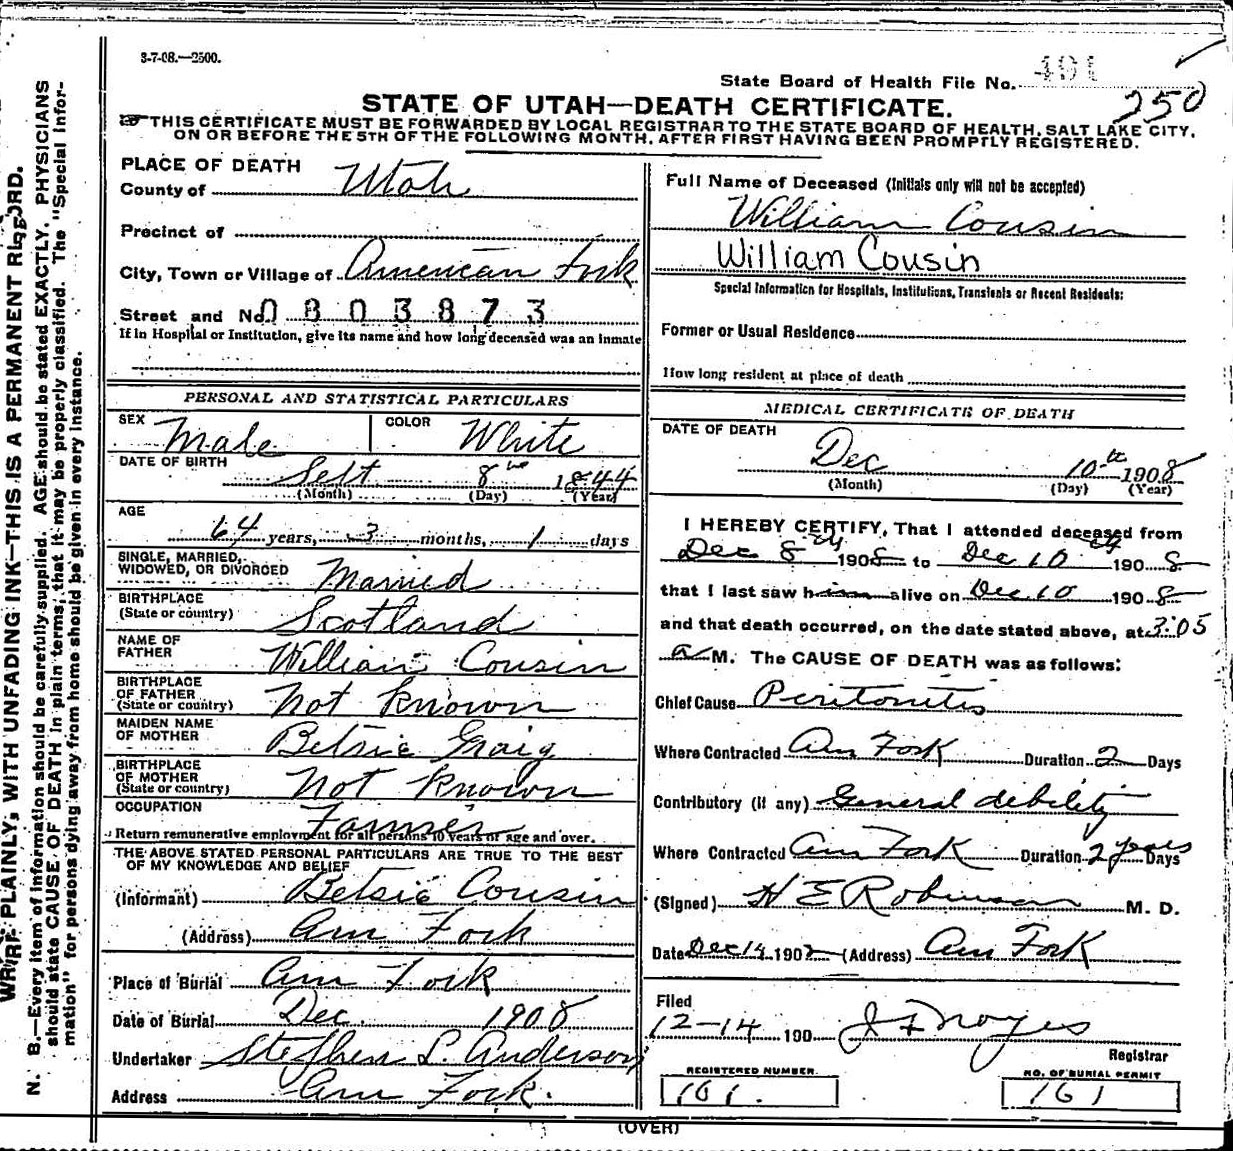 3-7-08.—2500.
State Board of Health File No. 491
250
STATE OF UTAH—DEATH CERTIFICATE.
THIS CERTIFICATE MUST BE FORWARDED BY LOCAL REGISTRAR TO THE STATE BOARD OF HEALTH, SALT LAKE CITY,
ON OR BEFORE THE 5TH OF THE FOLLOWING MONTH, AFTER FIRST HAVING BEEN PROMPTLY REGISTERED.
WRITE PLAINLY, WITH UNFADING INK—THIS IS A PERMANENT RECORD.
N. B.—Every item of information should be carefully supplied. AGE should be stated EXACTLY. PHYSICIANS
should state CAUSE OF DEATH in plain terms, that it may be properly classified. The "Special Infor-
mation" for persons dying away from home should be given in every instance.
PLACE OF DEATH
County of Utah
Precinct of
City, Town or Village of American Fork
Street and No. 0803873
If in Hospital or Institution, give its name and how long deceased was an inmate
PERSONAL AND STATISTICAL PARTICULARS
SEX Male COLOR White
DATE OF BIRTH Sept 8th 1844
(Month) (Day) (Year)
AGE
64 years, 3 months, 1 days
SINGLE, MARRIED,
WIDOWED, OR DIVORCED Married
BIRTHPLACE
(State or country) Scotland
NAME OF
FATHER William Cousin
BIRTHPLACE
OF FATHER
(State or country) Not Known
MAIDEN NAME
OF MOTHER Betsie Graig
BIRTHPLACE
OF MOTHER
(State or country) Not Known
OCCUPATION Farmer
Return remunerative employment for all persons 10 years of age and over.
THE ABOVE STATED PERSONAL PARTICULARS ARE TRUE TO THE BEST
OF MY KNOWLEDGE AND BELIEF
(Informant) Betsie Cousin
(Address) Am Fork
Place of Burial Am Fork
Date of Burial Dec 1908
Undertaker Stephen L. Anderson
Address Am Fork.
Full Name of Deceased (Initials only will not be accepted)
William Cousin
William Cousin
Special Information for Hospitals, Institutions, Transients or Recent Residents:
Former or Usual Residence
How long resident at place of death
MEDICAL CERTIFICATE OF DEATH
DATE OF DEATH
Dec 10th 1908
(Month) (Day) (Year)
I HEREBY CERTIFY, That I attended deceased from
Dec 8th 1908 to Dec 10th 1908
that I last saw him alive on Dec 10 1908
and that death occurred, on the date stated above, at 3:05
a M. The CAUSE OF DEATH was as follows:
Chief Cause Peritonitis
Where Contracted Am Fork Duration 2 Days
Contributory (if any) General debility
Where Contracted Am Fork Duration 2 years Days
(Signed) H E Robinson M. D.
Date Dec 14 1908 (Address) Am Fork
Filed
12-14 190 J F Noyes
Registrar
REGISTERED NUMBER
161.
NO. OF BURIAL PERMIT
161
(OVER)